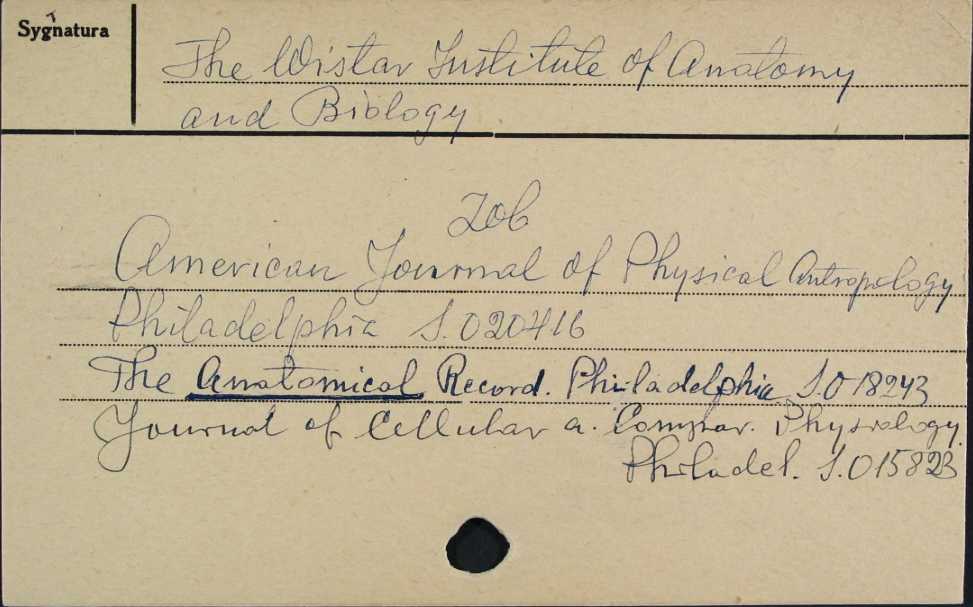 Sygnatura
The Wistar Institute of Anatomy
and Biology
Zob
American Journal of Physical Antropology
Philadelphia S.020416
The Anatomical Record. Philadelphia S.018243
Journal of Cellular a. Compar. Physiology.
Philadel. S.015823